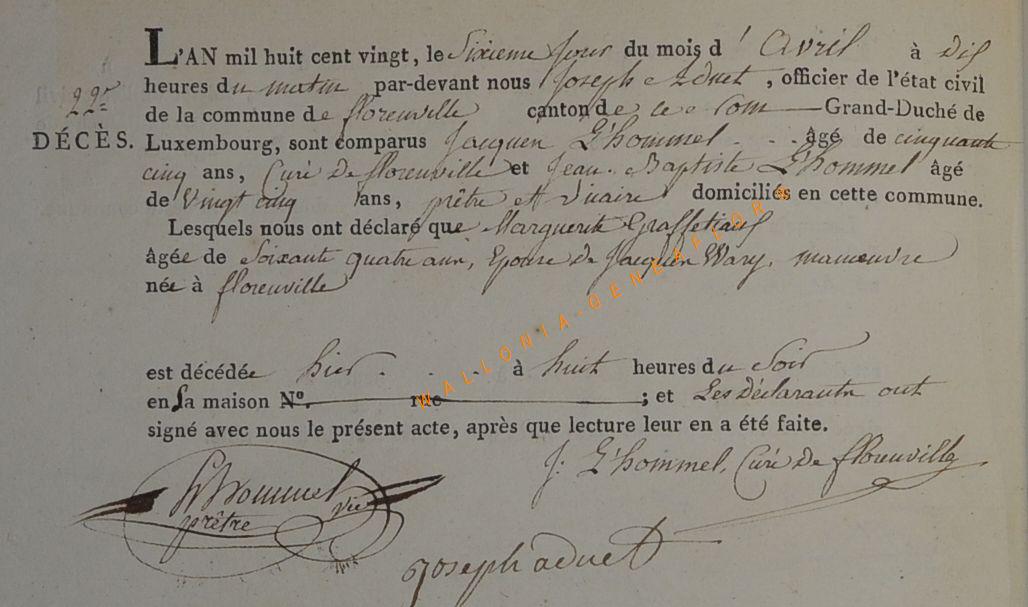 L'AN mil huit cent vingt, le Sixieme Jour du mois d'Avril à dix
heures du matin par-devant nous Joseph Aduet, officier de l'état civil
22e
de la commune de florenville canton de ce Com Grand-Duché de
DÉCÈS.
Luxembourg, sont comparus Jacques L'hommel âgé de cinquante
cinq ans, Curé De florenville et Jean Baptiste L'hommel âgé
de Vingt cinq ans, prêtre et Vicaire domiciliés en cette commune.
Lesquels nous ont déclaré que Marguerite
âgée de Soixante quatre ans, Epouse de Jacques Wary, manoeuvre
née à florenville
est décédée hier à huit heures du Soir
en Sa maison N°. rue ; et Les Déclarants ont
signé avec nous le présent acte, après que lecture leur en a été faite.
L'hommel vic
prêtre
J. L'hommel, Curé De florenville
Joseph aduet
WALLONIA-GENEAFLOR